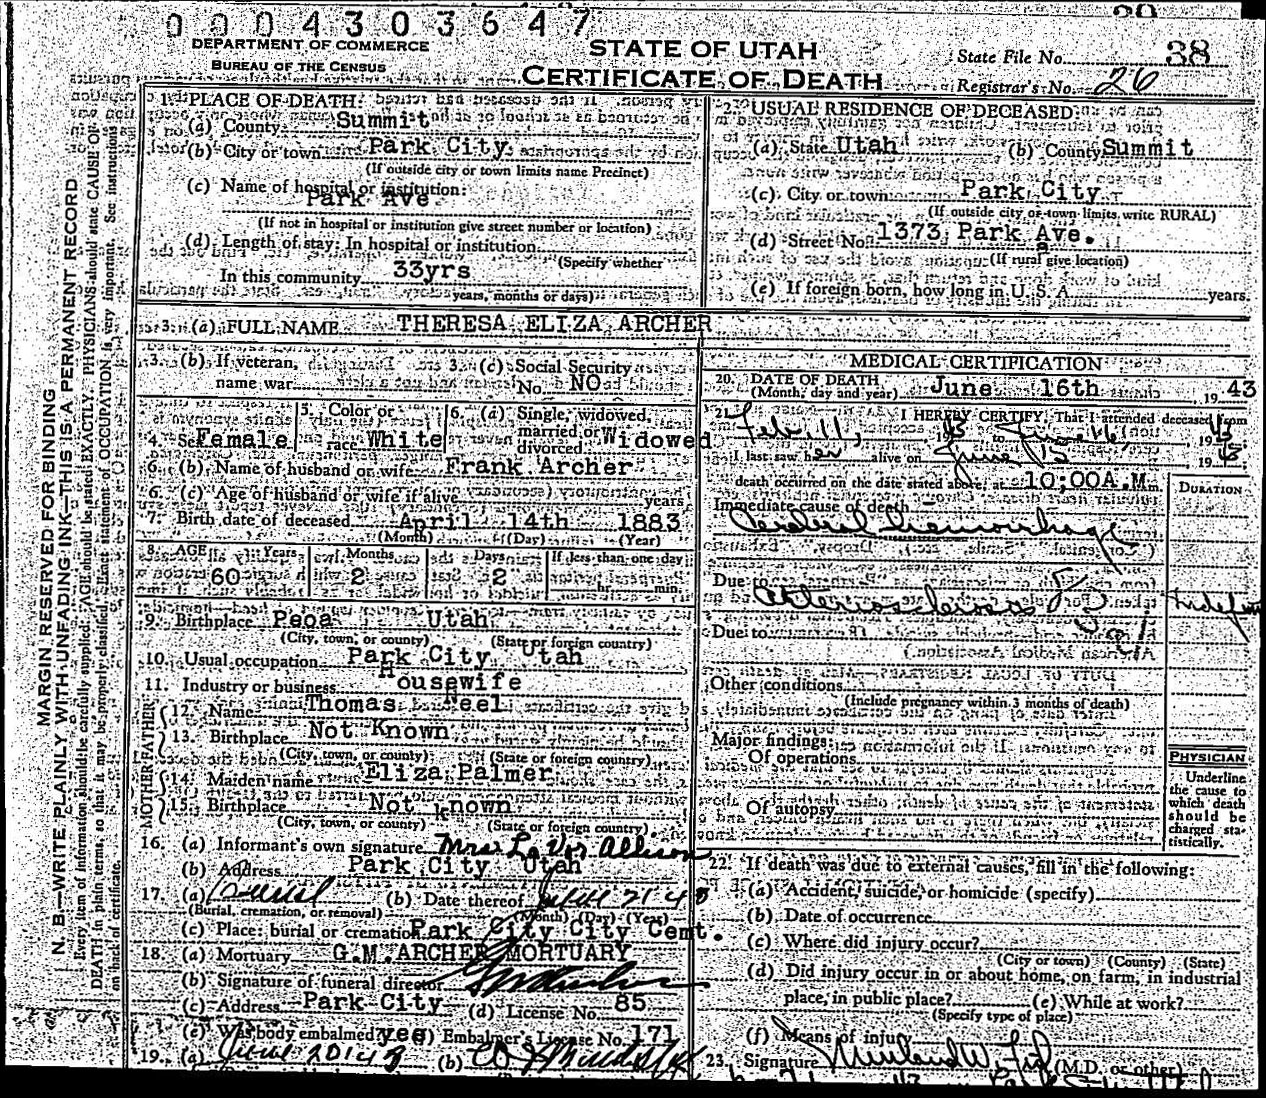 0 0 0 4 3 0 3 6 4 7
DEPARTMENT OF COMMERCE
BUREAU OF THE CENSUS
STATE OF UTAH
CERTIFICATE OF DEATH
State File No. 38
Registrar's No. 26
1. PLACE OF DEATH:
(a) County Summit
(b) City or town Park City
(If outside city or town limits name Precinct)
(c) Name of hospital or institution:
Park Ave
(If not in hospital or institution give street number or location)
(d) Length of stay: In hospital or institution
(Specify whether
In this community 33yrs
years, months or days)
2. USUAL RESIDENCE OF DECEASED:
(a) State Utah (b) County Summit
(c) City or town Park City
(If outside city or town limits, write RURAL)
(d) Street No. 1373 Park Ave.
(If rural give location)
(e) If foreign born, how long in U. S. A. years.
3. (a) FULL NAME THERESA ELIZA ARCHER
3. (b) If veteran, name war
3. (c) Social Security No. NO
4. Sex Female
5. Color or race White
6. (a) Single, widowed, married or divorced Widowed
6. (b) Name of husband or wife Frank Archer
6. (c) Age of husband or wife if alive years
7. Birth date of deceased April 14th 1883
(Month) (Day) (Year)
8. AGE Years Months Days If less than one day
60 2 2 hr. min.
9. Birthplace Peoa Utah
(City, town, or county) (State or foreign country)
10. Usual occupation Park City Utah
11. Industry or business Housewife
FATHER
12. Name Thomas Neel
13. Birthplace Not Known
(City, town, or county) (State or foreign country)
MOTHER
14. Maiden name Eliza Palmer
15. Birthplace Not known
(City, town, or county) (State or foreign country)
16. (a) Informant's own signature Mrs. La Vor Allison
(b) Address Park City Utah
17. (a) Burial (b) Date thereof 21 43
(Burial, cremation, or removal) (Month) (Day) (Year)
(c) Place: burial or cremation Park City City Cemt.
18. (a) Mortuary G.M.ARCHER MORTUARY
(b) Signature of funeral director
(c) Address Park City (d) License No. 85
(e) Was body embalmed? yes (f) Embalmer's License No. 171
19. (a) June 20 1943 (b)
MEDICAL CERTIFICATION
20. DATE OF DEATH June 16th 1943
(Month, day and year)
21. I HEREBY CERTIFY, That I attended deceased from
Feb. 11, 1943 to June 16 1943
I last saw her alive on June 15 1943
death occurred on the date stated above; at 10;00A.M m.
DURATION
Immediate cause of death
Cerebral hemorrhage
Due to
Arteriosclerosis
Due to
Other conditions
(Include pregnancy within 3 months of death)
Major findings:
Of operations
Of autopsy
PHYSICIAN
Underline
the cause to
which death
should be
charged sta-
tistically.
22. If death was due to external causes, fill in the following:
(a) Accident, suicide, or homicide (specify)
(b) Date of occurrence
(c) Where did injury occur?
(City or town) (County) (State)
(d) Did injury occur in or about home, on farm, in industrial
place, in public place? (e) While at work?
(Specify type of place)
(f) Means of injury
23. Signature (M.D. or other)
MARGIN RESERVED FOR BINDING
N. B.—WRITE PLAINLY WITH UNFADING INK—THIS IS A PERMANENT RECORD
Every item of information should be carefully supplied. AGE should be stated EXACTLY. PHYSICIANS should state CAUSE OF
DEATH in plain terms, so that it may be properly classified. Exact statement of OCCUPATION is very important. See instructions
on back of certificate.